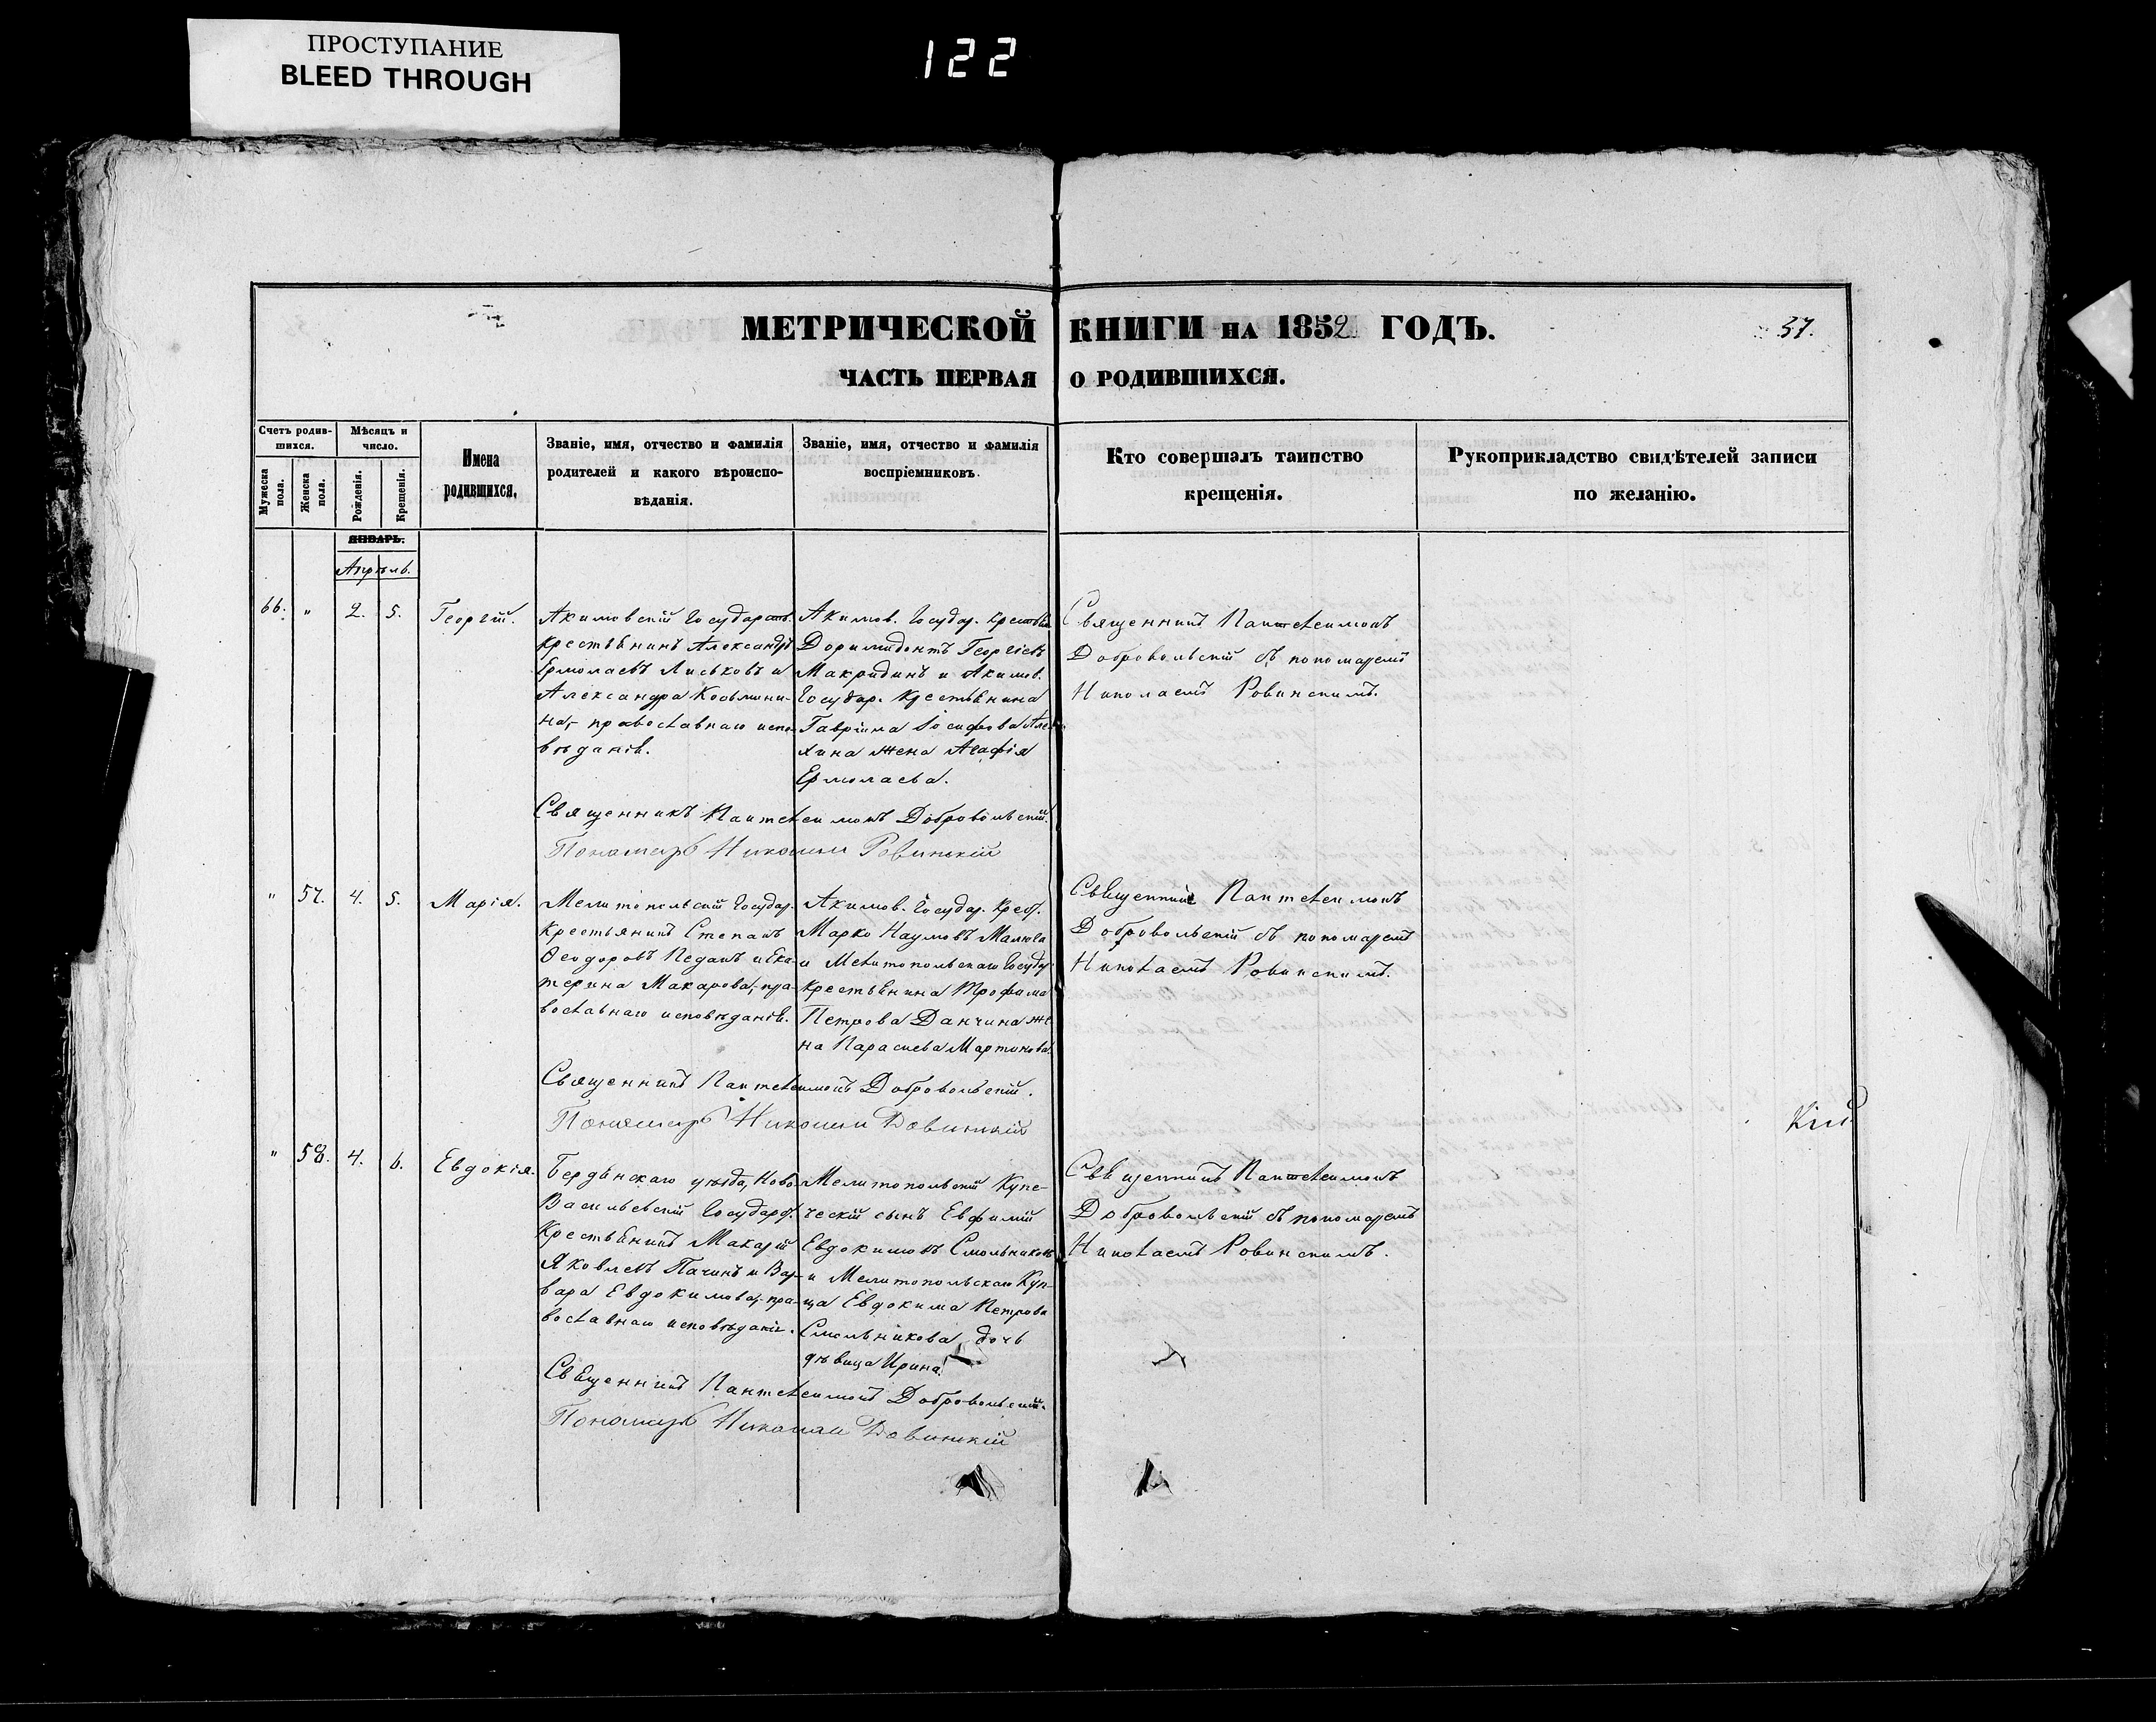 ПРОСТУПАНИЕ
BLEED THROUGH
122
МЕТРИЧЕСКОЙ КНИГИ НА 1852 ГОДЪ.
37.
ЧАСТЬ ПЕРВАЯ О РОДИВШИХСЯ.
Счетъ родив-
шихся.
Мужеска пола.
Женска пола.
Мѣсяцъ и
число.
Рожденія.
Крещенія.
Имена
родившихся.
Званіе, имя, отчество и фамилія
родителей и какого вѣроиспо-
вѣданія.
Званіе, имя, отчество и фамилія
воспріемниковъ.
Кто совершалъ таинство
крещенія.
Рукоприкладство свидѣтелей записи
по желанію.
ЯНВАРЬ.
Апрѣль.
66. " 2. 5. Георгій.
Акимовскій Государств.
крестьянинъ Александръ
Ермолаевъ Лиськовъ и
Александра Косьмини-
на, православнаго испо-
вѣданія.
Акимов. Государ. крестьян
Доримидонтъ Георгіевъ
Макридинъ и Акимов.
Государ. Крестьянина
Гавріила Іосифова
хина жена Агафія
Ермолаева.
Священникъ Пантелеимонъ
Добровольскій съ пономаремъ
Николаемъ Ровинскимъ.
Священникъ Пантелеимонъ Добровольскій.
Пономарь Николай Ровинскій
" 57. 4. 5. Марія.
Мелитопольскій Государ.
Крестьянинъ Степанъ
Ѳеодоровъ Педанъ и Ека-
терина Макарова, пра-
вославнаго исповѣданія.
Акимов. Государ. Крест.
Марко Наумовъ Малюга
и Мелитопольскаго Государ.
крестьянина Трофима
Петрова Данчина же
на Парасиева Мартинова.
Священникъ Пантелеимонъ
Добровольскій съ пономаремъ
Николаемъ Ровинскимъ.
Священникъ Пантелеимонъ Добровольскій.
Пономарь Николай Ровинскій
" 58. 4. 6. Евдокія.
Бердянскаго уѣзда, Ново-
Васильевскій Государст.
Крестьянинъ Макарій
Яковлевъ Пачинъ и Вар-
вара Евдокимова, пра-
вославнаго исповѣданія.
Мелитопольскій Купе-
ческій сынъ Евфимій
Евдокимовъ Смольниковъ
и Мелитопольскаго Куп-
ца Евдокима Петрова
Смольникова дочь
дѣвица Ирина.
Священникъ Пантелеимонъ
Добровольскій съ пономаремъ
Николаемъ Ровинскимъ.
Священникъ Пантелеимонъ Добровольскій.
Пономарь Николай Ровинскій